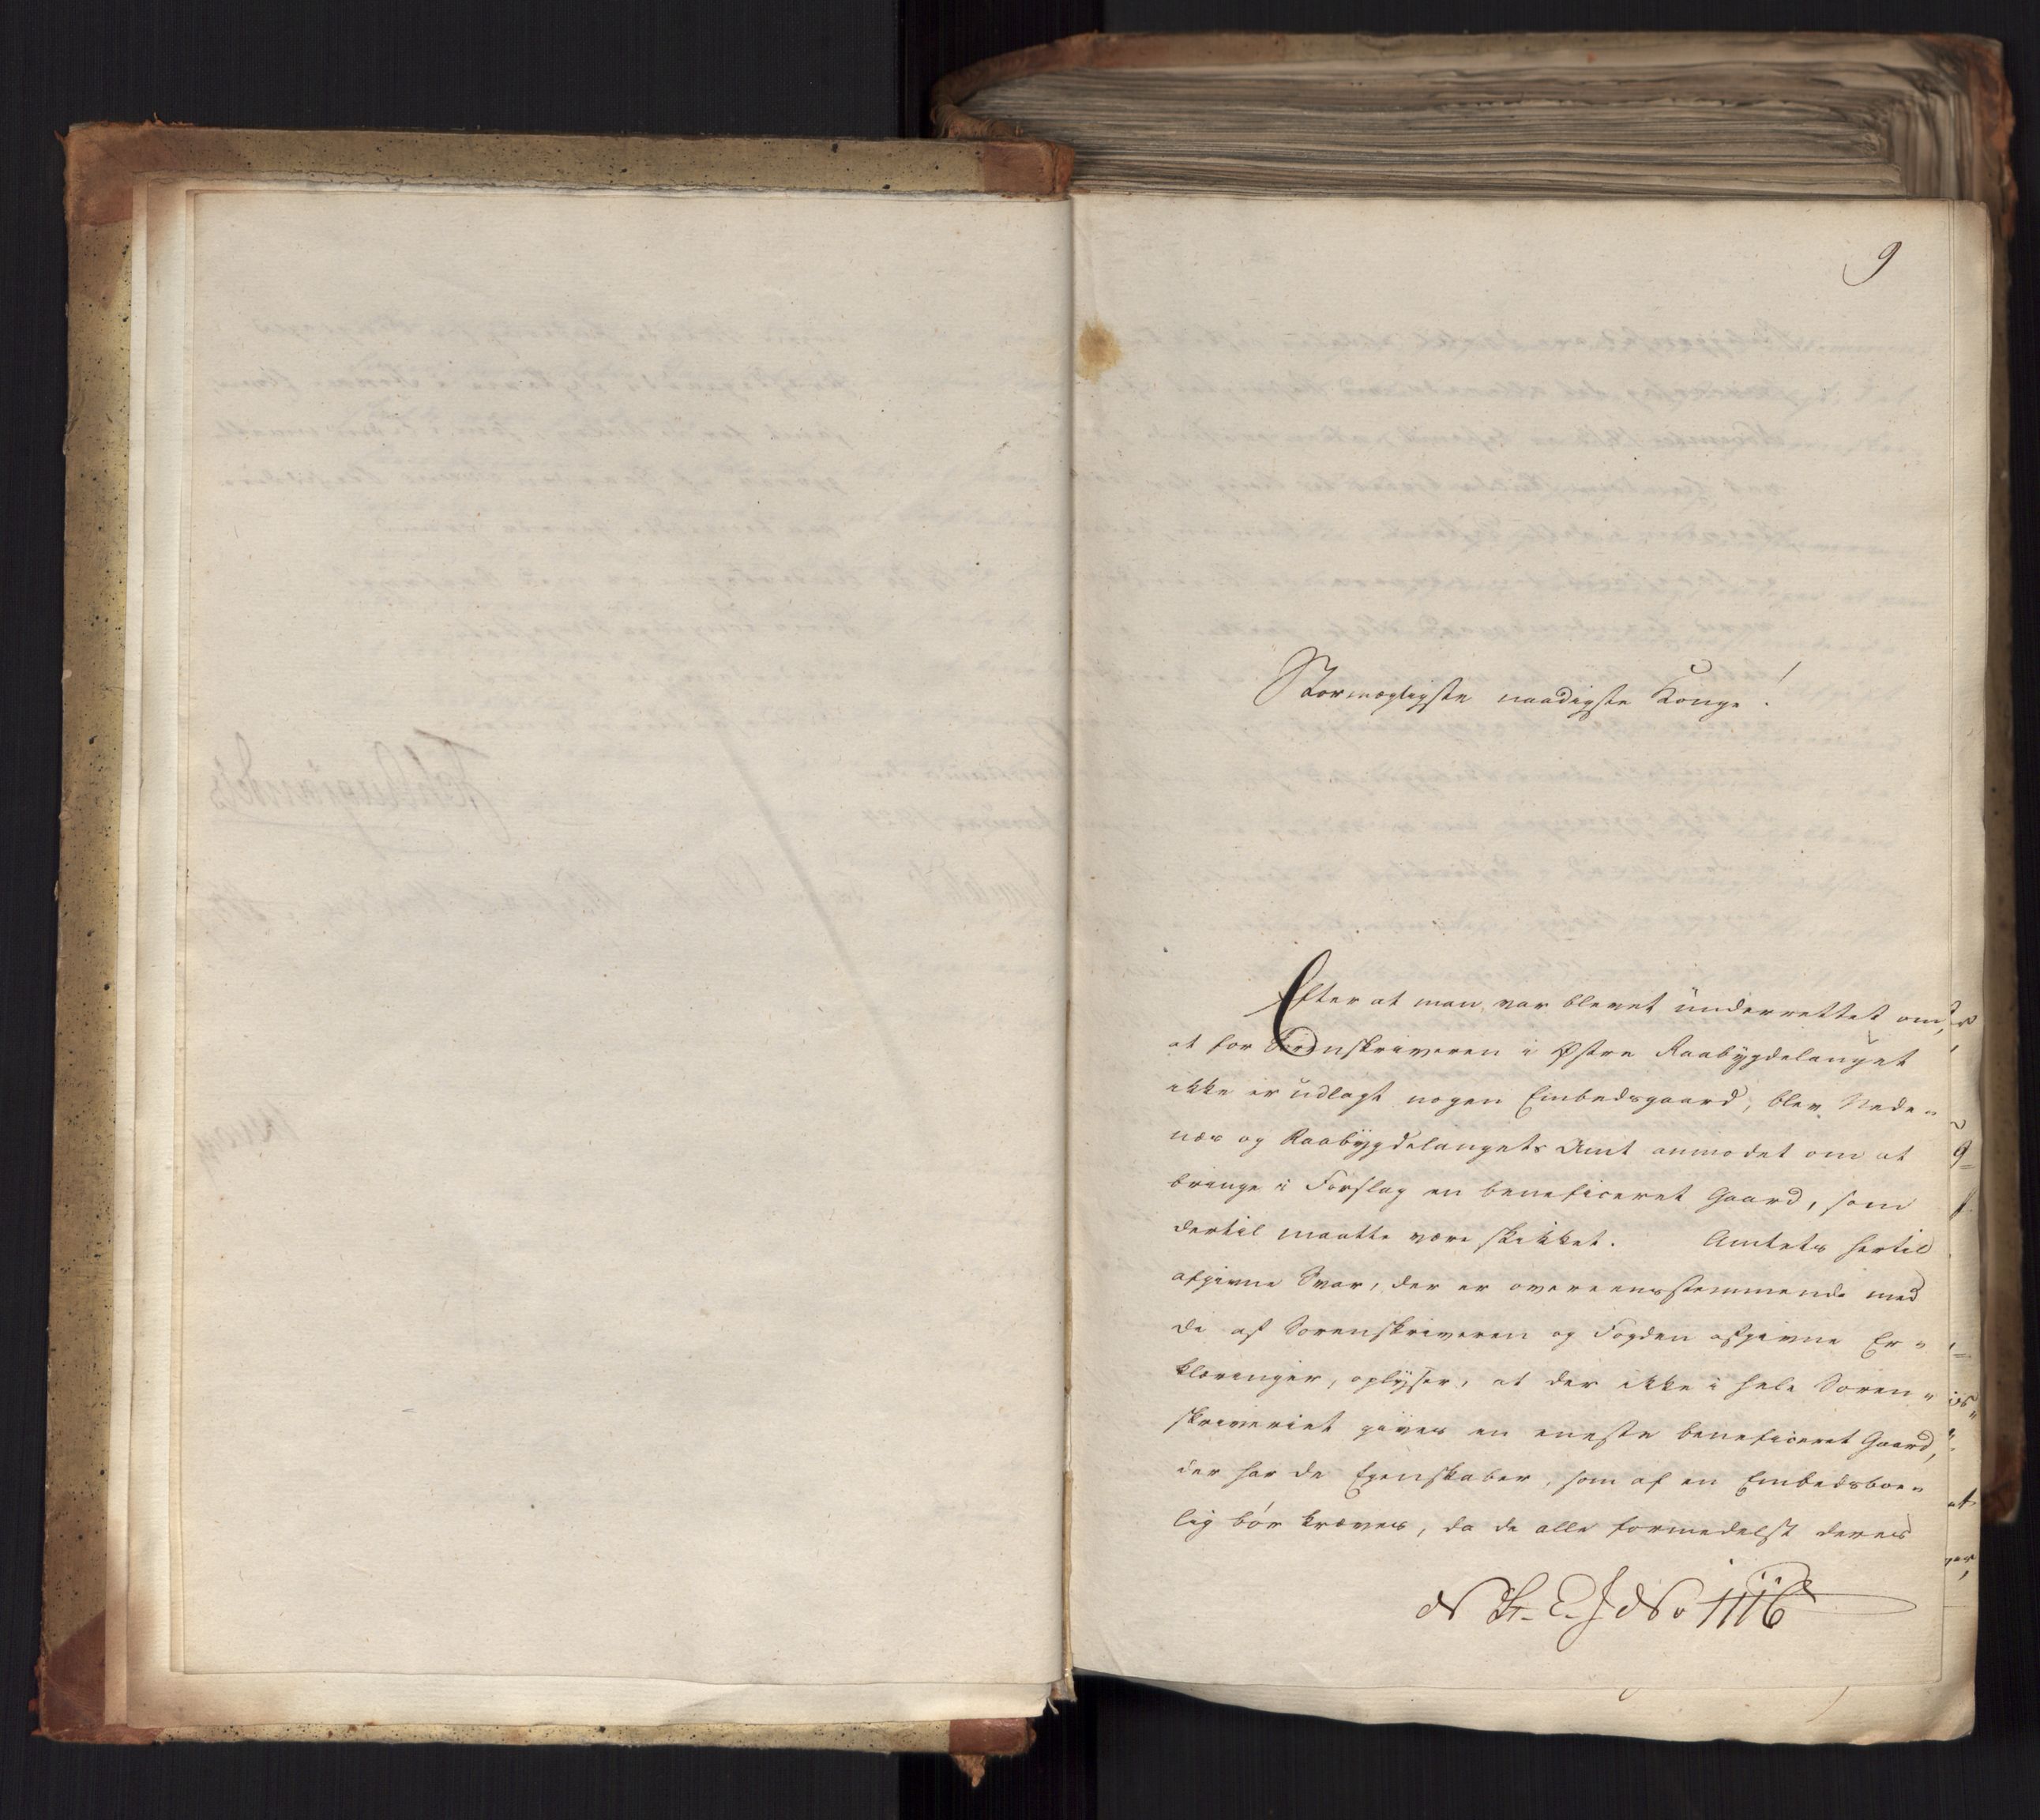 9
Stormægtigste naadigste Konge!
Efter at man var blevet underrettet om,
at for Sorenskriveren i Østre Raabygdelauget
ikke er udlagt nogen Embedsgaard, blev Nede-
næs og Raabygdelaugets Amt anmodet om at
bringe i Forslag en beneficeret Gaard, som
dertil maatte være skikket. Amtets hertil
afgivne Svar, der er overeensstemmende med
de af Sorenskriveren og Fogden afgivne Er-
klæringer, oplyser, at der ikke i hele Soren-
skriveriet gives en eneste beneficeret Gaard,
der har de Egenskaber, som af en Embedsboe-
lig bør kræves, da de alle formedelst deres